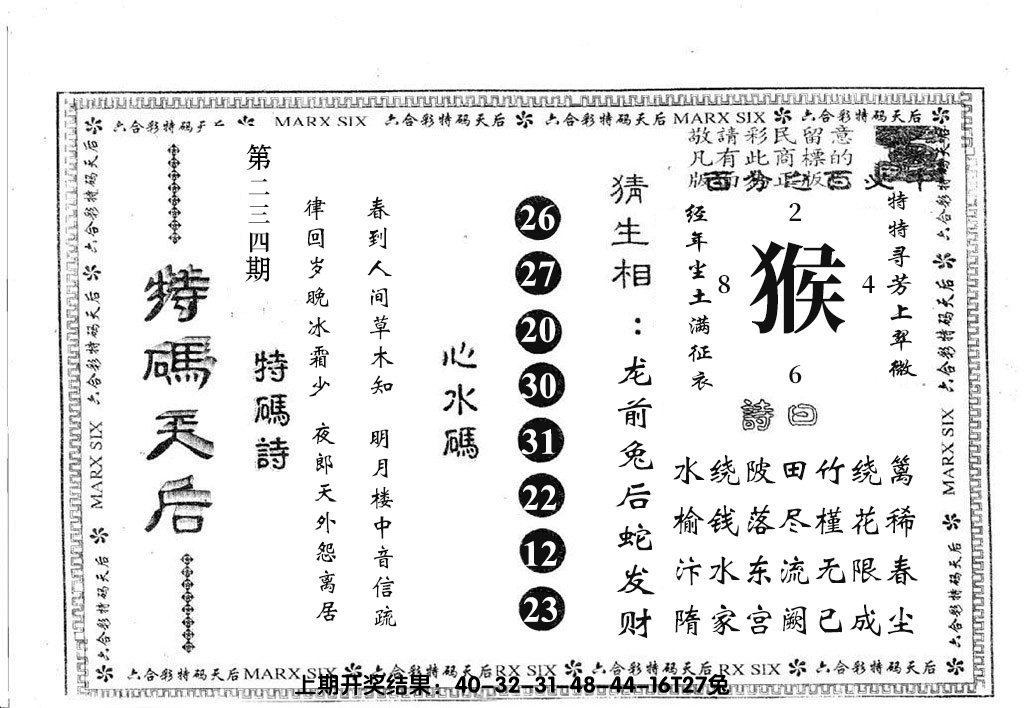 六合彩特码天后 MARX SIX 六合彩特码天后 六合彩特码天后 MARX SIX 六合彩特码天后
敬請彩民留意
凡有此商標的
特特寻芳上翠微
2
8 猴 4
6
经年尘土满征衣
詩曰
水绕陂田竹绕篱
榆钱落尽槿花稀
汴水东流无限春
隋家宫阙已成尘
猜生相：龙前兔后蛇发财
26
27
20
30
31
22
12
23
心水碼
春到人间草木知 明月楼中音信疏
律回岁晚冰霜少 夜郎天外怨离居
特碼詩
第二三四期
特碼天后
六合彩特码天后 六合彩特码天后 MARX SIX 六合彩特码天后
六合彩特码天后 六合彩特码天后 MARX SIX 六合彩特码天后
六合彩特码天后 MARX SIX 六合彩特码天后 RX SIX 六合彩特码天后 RX SIX 六合彩特码天后
上期开奖结果：40-32-31-48-44-16T27兔